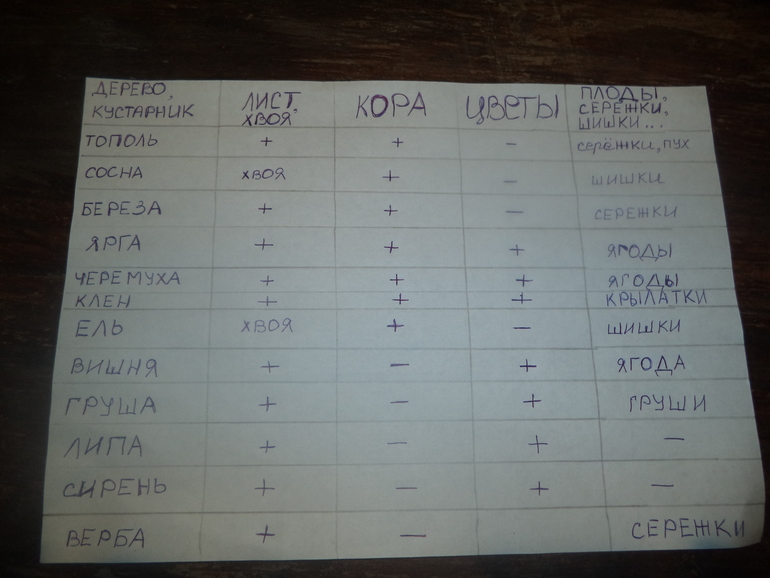 ДЕРЕВО, КУСТАРНИК ЛИСТ, ХВОЯ КОРА ЦВЕТЫ ПЛОДЫ, СЕРЁЖКИ, ШИШКИ...
ТОПОЛЬ + + - серёжки, пух
СОСНА ХВОЯ + - ШИШКИ
БЕРЕЗА + + - СЕРЕЖКИ
ЯРГА + + + ЯГОДЫ
ЧЕРЕМУХА + + + ЯГОДЫ
КЛЕН + + + КРЫЛАТКИ
ЕЛЬ ХВОЯ + - ШИШКИ
ВИШНЯ + - + ЯГОДА
ГРУША + - + ГРУШИ
ЛИПА + - + -
СИРЕНЬ + - + -
ВЕРБА + - СЕРЕЖКИ